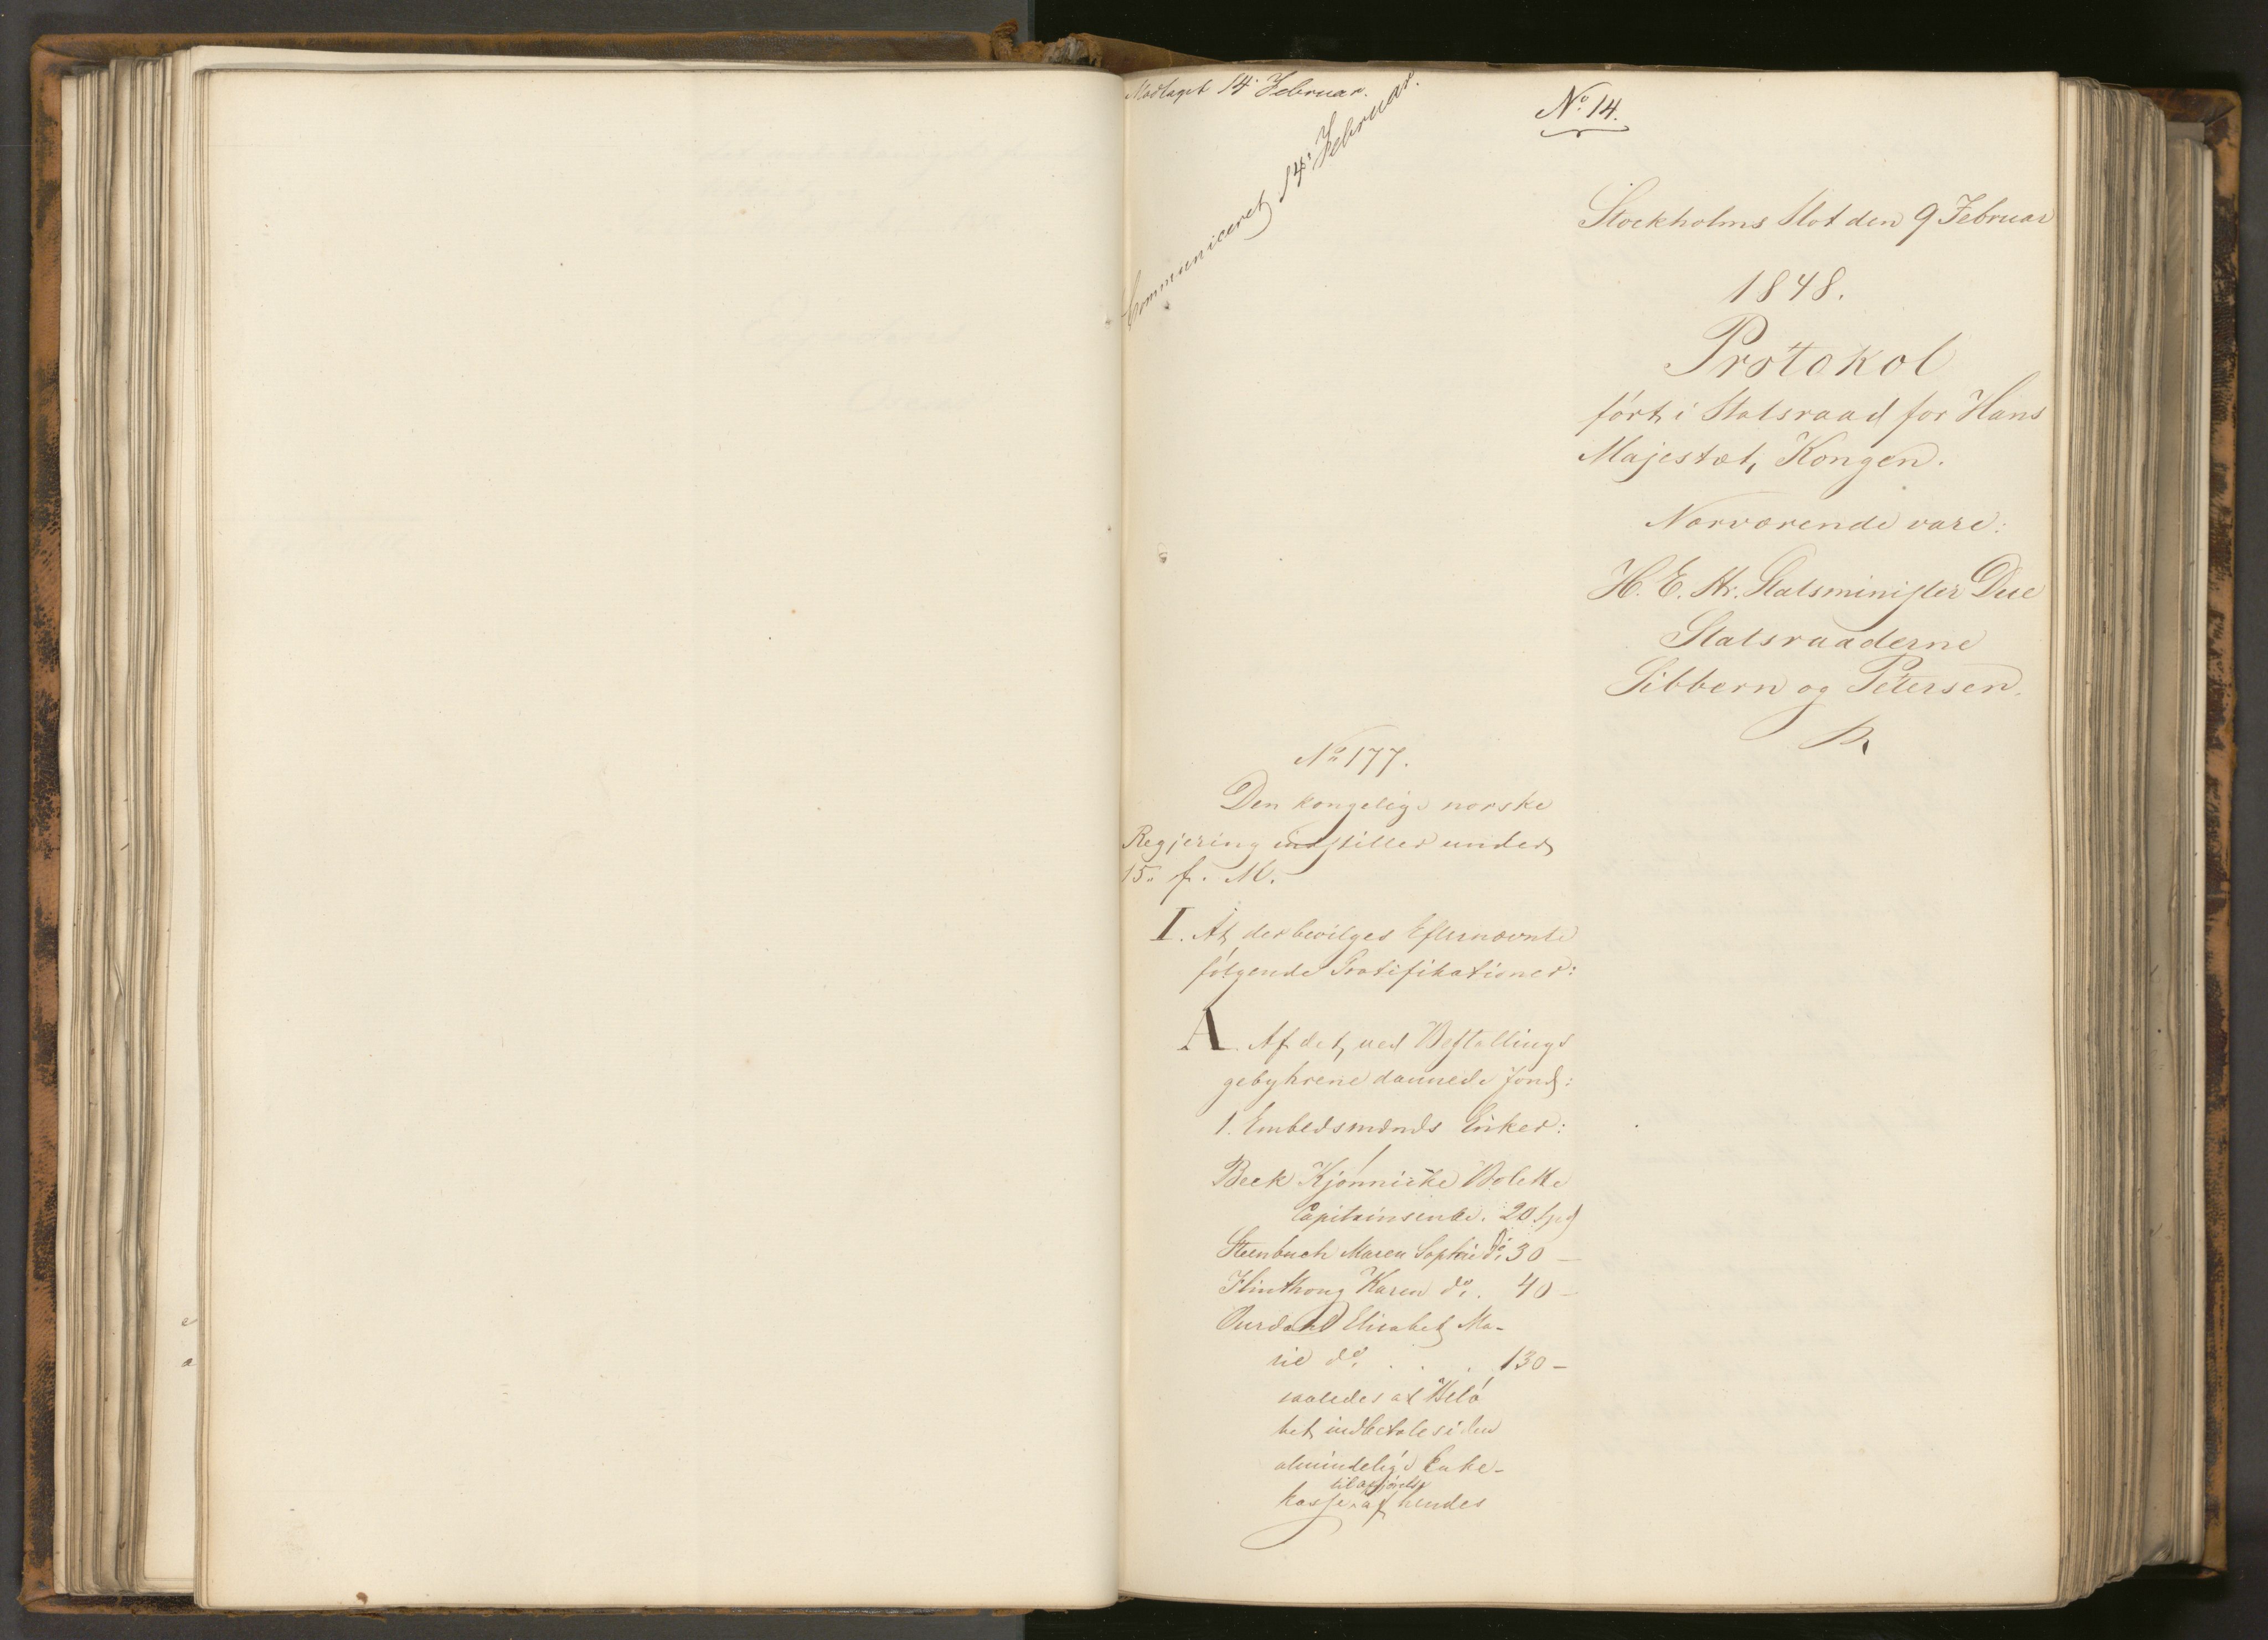 Modtaget 14' Februar.
Communiceret 14' Februar.
No. 14.
Stockholms Slot den 9 Februar
1848.
Protokol
ført i Statsraad for Hans
Majestæt, Kongen.
Nærværende vare:
H. E. Hr. Statsminister Due
Statsraaderne
Sibbern og Petersen.
No 177.
Den kongelige norske
Regjering indstiller under
15. f. M.
I. At der bevilges Efternævnte
følgende Gratifikationer:
A. Af det, ved Bestallings
gebyhrene dannede Fond:
1. Embedsmænds Enker:
Beck Kjønnicke Bolette
Capitainsenke. 20 Spd
Steenbuch Maren Sophie do. 30 —
Flinthoug Karen do. . 40 —
Ourdahl Elisabet Ma-
rie do. . . . 130 —
saaledes at Belø
bet indbetales i den
almindelige Enke-
kasse til Afgjørelse af hendes